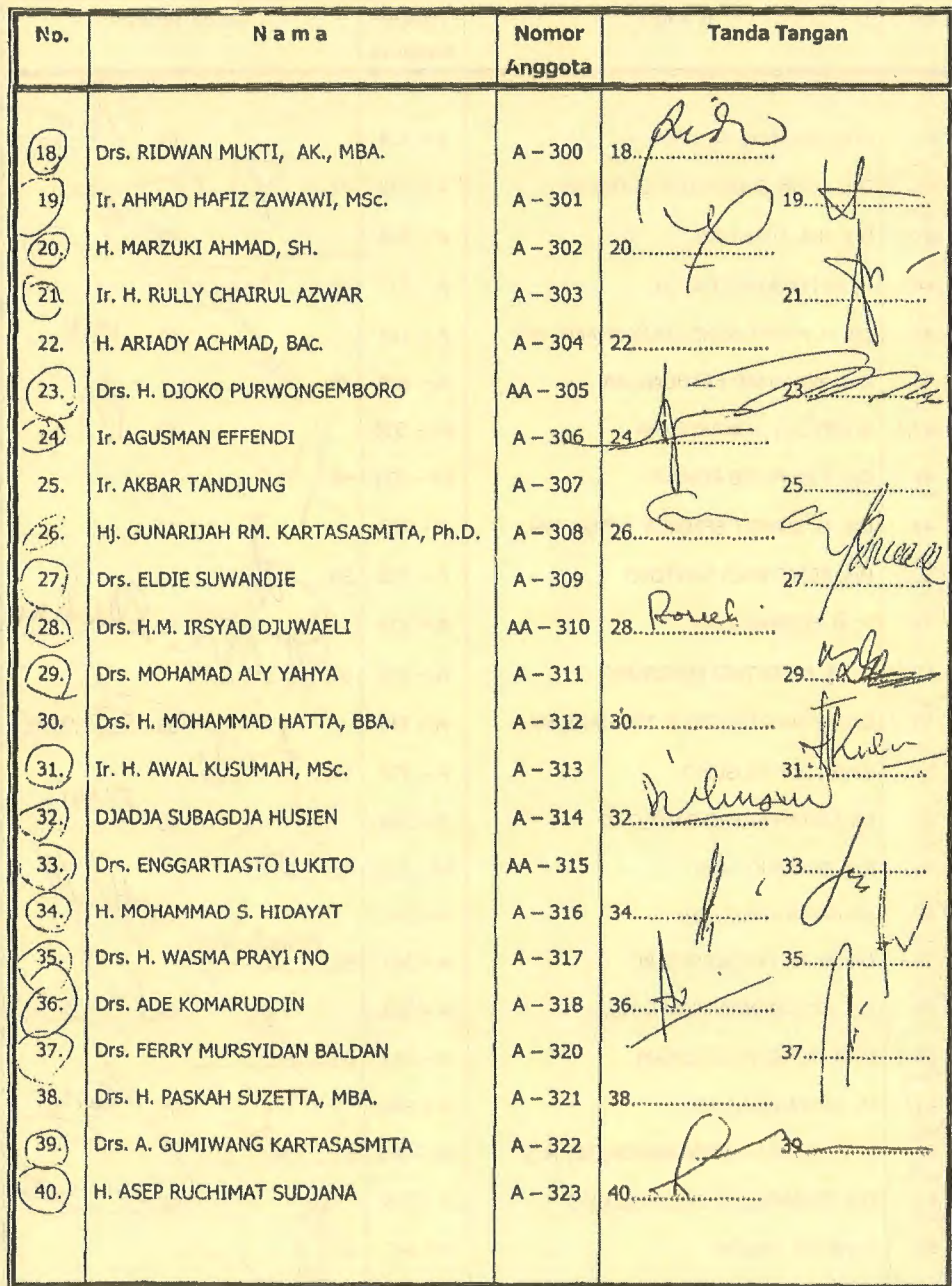 No. Nama Nomor Anggota Tanda Tangan
18. Drs. RIDWAN MUKTI, AK., MBA. A – 300 18..........................
19. Ir. AHMAD HAFIZ ZAWAWI, MSc. A – 301 19..........................
20. H. MARZUKI AHMAD, SH. A – 302 20..........................
21. Ir. H. RULLY CHAIRUL AZWAR A – 303 21..........................
22. H. ARIADY ACHMAD, BAc. A – 304 22..........................
23. Drs. H. DJOKO PURWONGEMBORO AA – 305 23..........................
24. Ir. AGUSMAN EFFENDI A – 306 24..........................
25. Ir. AKBAR TANDJUNG A – 307 25..........................
26. Hj. GUNARIJAH RM. KARTASASMITA, Ph.D. A – 308 26..........................
27. Drs. ELDIE SUWANDIE A – 309 27..........................
28. Drs. H.M. IRSYAD DJUWAELI AA – 310 28..........................
29. Drs. MOHAMAD ALY YAHYA A – 311 29..........................
30. Drs. H. MOHAMMAD HATTA, BBA. A – 312 30..........................
31. Ir. H. AWAL KUSUMAH, MSc. A – 313 31..........................
32. DJADJA SUBAGDJA HUSIEN A – 314 32..........................
33. Drs. ENGGARTIASTO LUKITO AA – 315 33..........................
34. H. MOHAMMAD S. HIDAYAT A – 316 34..........................
35. Drs. H. WASMA PRAYITNO A – 317 35..........................
36. Drs. ADE KOMARUDDIN A – 318 36..........................
37. Drs. FERRY MURSYIDAN BALDAN A – 320 37..........................
38. Drs. H. PASKAH SUZETTA, MBA. A – 321 38..........................
39. Drs. A. GUMIWANG KARTASASMITA A – 322 39..........................
40. H. ASEP RUCHIMAT SUDJANA A – 323 40..........................